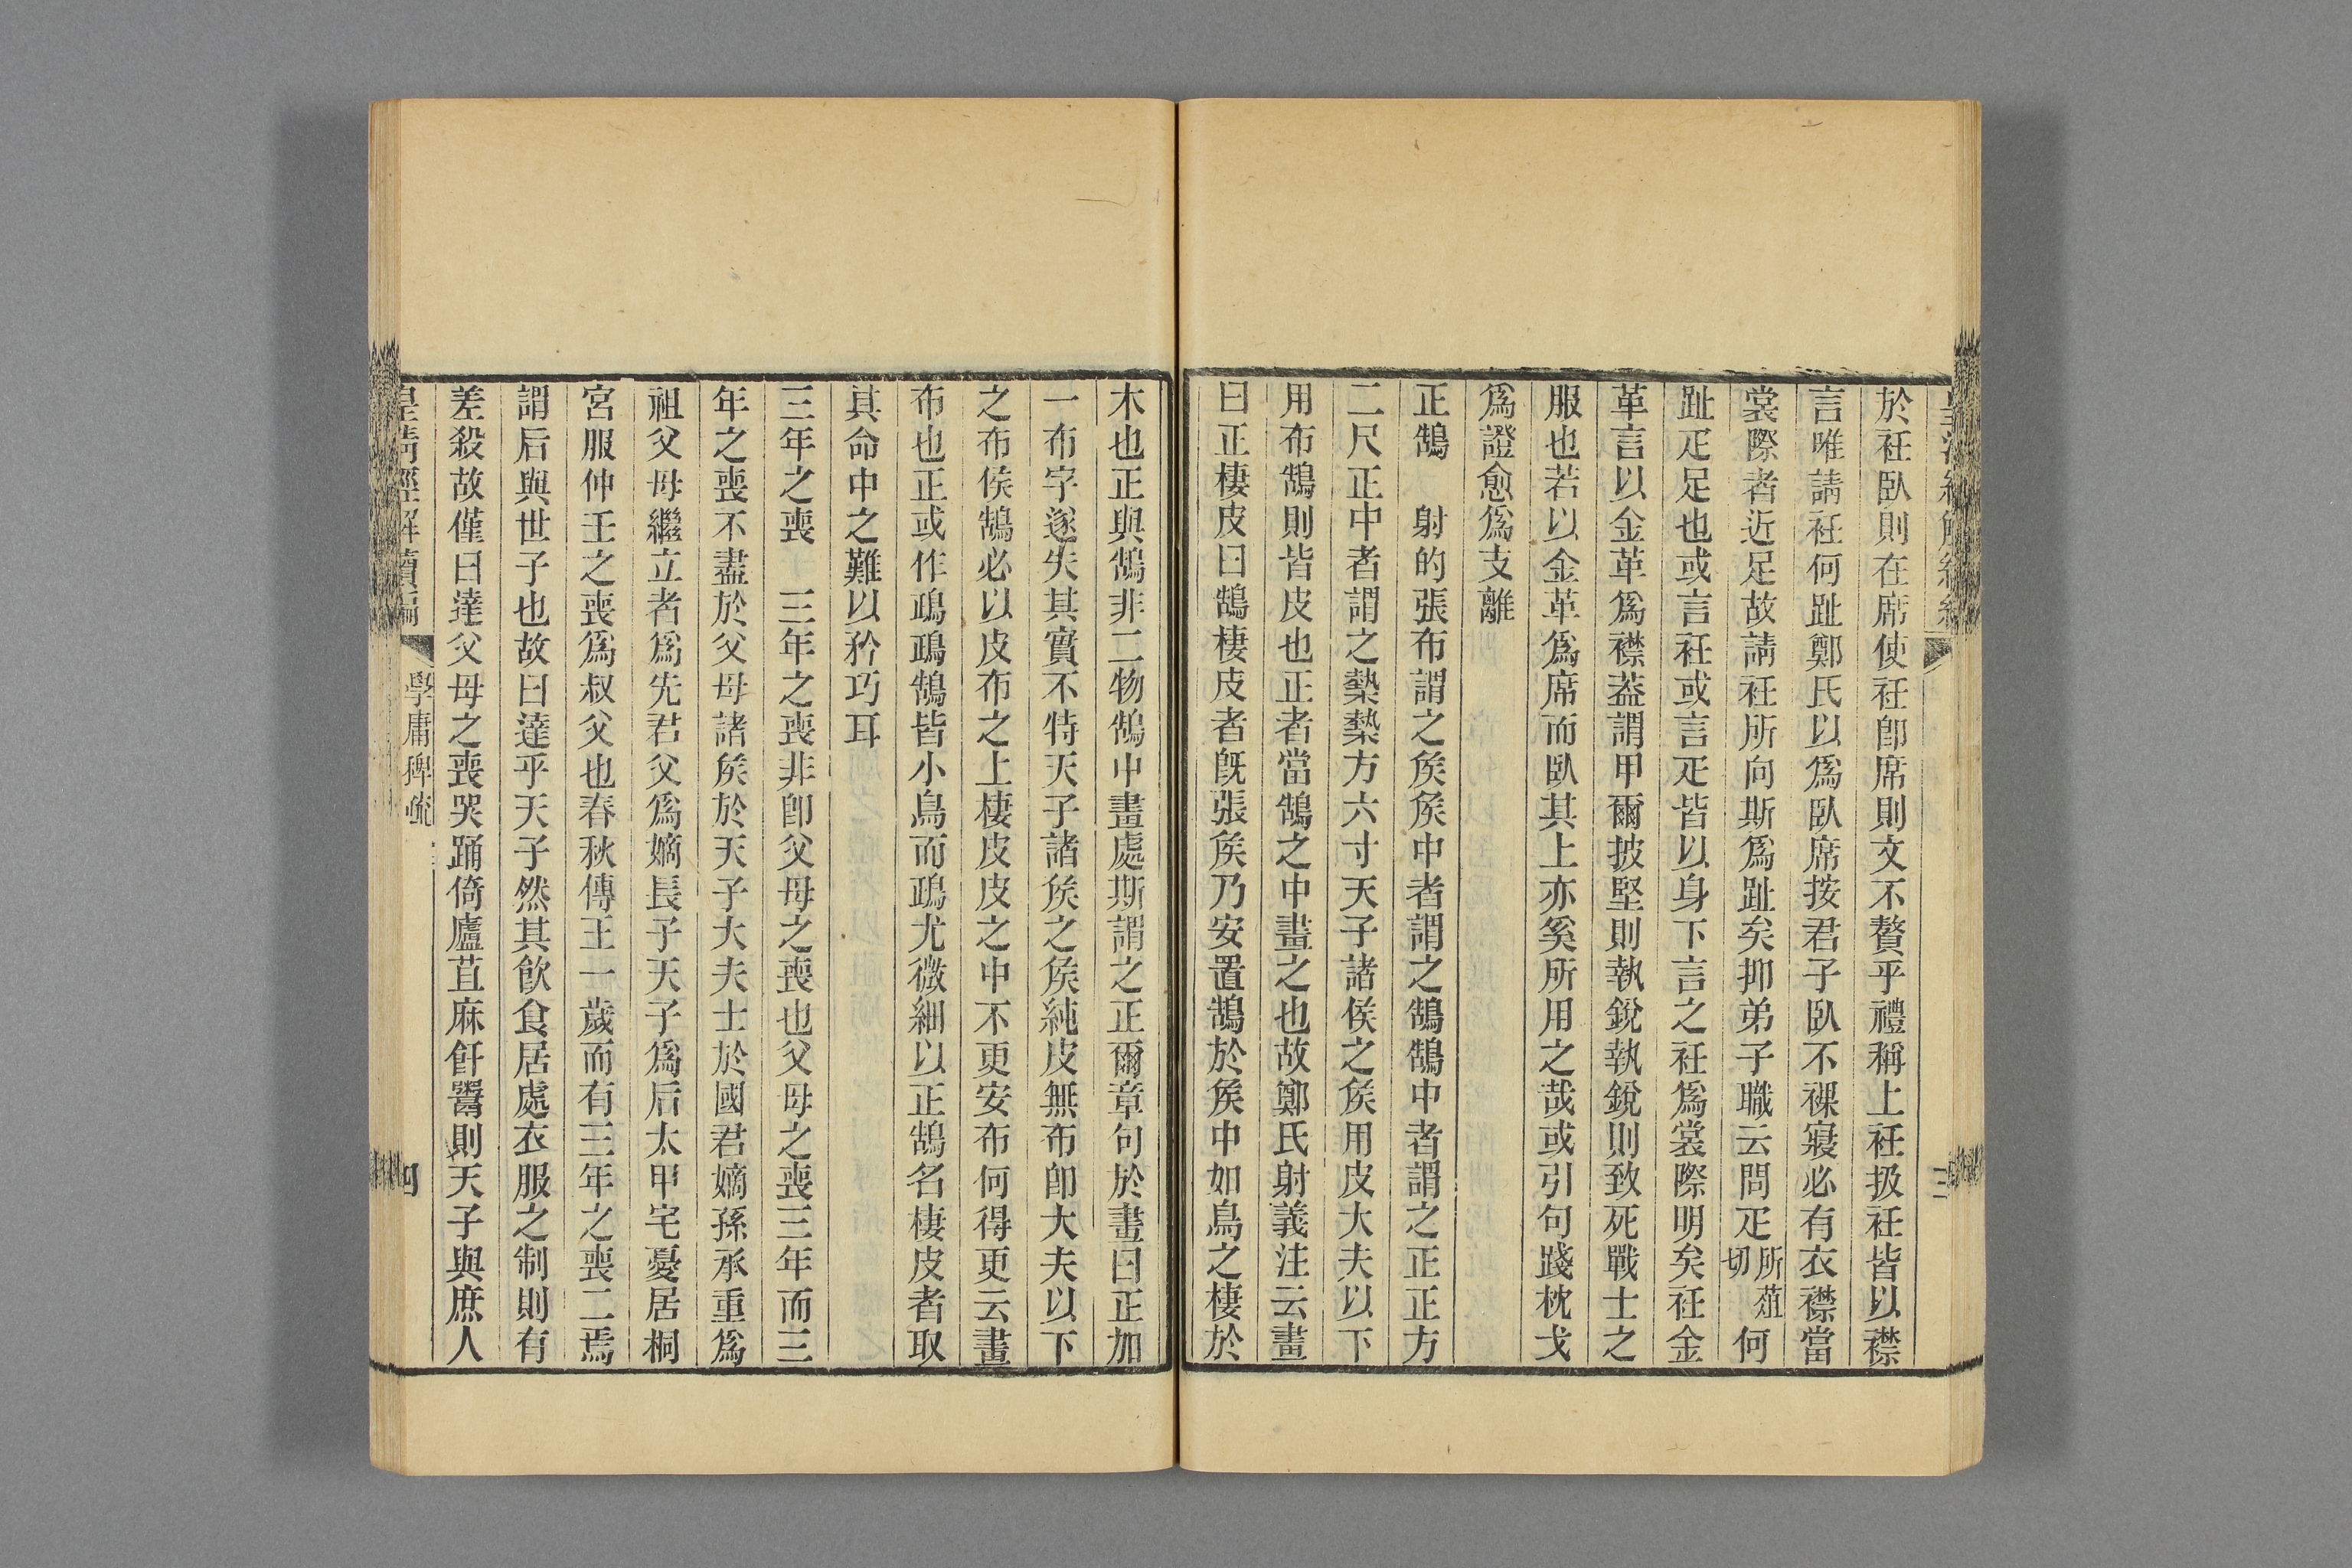 於衽臥則在席使衽卽席則文不贅乎禮稱上衽扱衽皆以襟
言唯請衽何趾鄭氏以爲臥席按君子臥不裸寢必有衣襟當
裳際者近足故請衽所向斯爲趾矣抑弟子職云問疋所葅切何
趾疋足也或言衽或言疋皆以身下言之衽爲裳際明矣衽金
革言以金革爲襟葢謂甲爾披堅則執銳執銳則致死戰士之
服也若以金革爲席而臥其上亦奚所用之哉或引句踐枕戈
爲證愈爲支離
正鵠　射的張布謂之矦矦中者謂之鵠鵠中者謂之正正方
二尺正中者謂之槷槷方六寸天子諸侯之矦用皮大夫以下
用布鵠則皆皮也正者當鵠之中畫之也故鄭氏射義注云畫
曰正棲皮曰鵠棲皮者旣張矦乃安置鵠於矦中如鳥之棲於
木也正與鵠非二物鵠中畫處斯謂之正爾章句於畫曰正加
一布字遂失其實不特天子諸矦之矦純皮無布卽大夫以下
之布侯鵠必以皮布之上棲皮皮之中不更安布何得更云畫
布也正或作鴊鴊鵠皆小鳥而鴊尤微細以正鵠名棲皮者取
其命中之難以矜巧耳
三年之喪　三年之喪非卽父母之喪也父母之喪三年而三
年之喪不盡於父母諸矦於天子大夫士於國君嫡孫承重爲
祖父母繼立者爲先君父爲嫡長子天子爲后太甲宅憂居桐
宮服仲壬之喪爲叔父也春秋傳王一歲而有三年之喪二焉
謂后與世子也故曰達乎天子然其飮食居處衣服之制則有
差殺故僅曰達父母之喪哭踊倚廬苴麻飦鬻則天子與庶人
皇淸經解續編　學庸稗疏　四